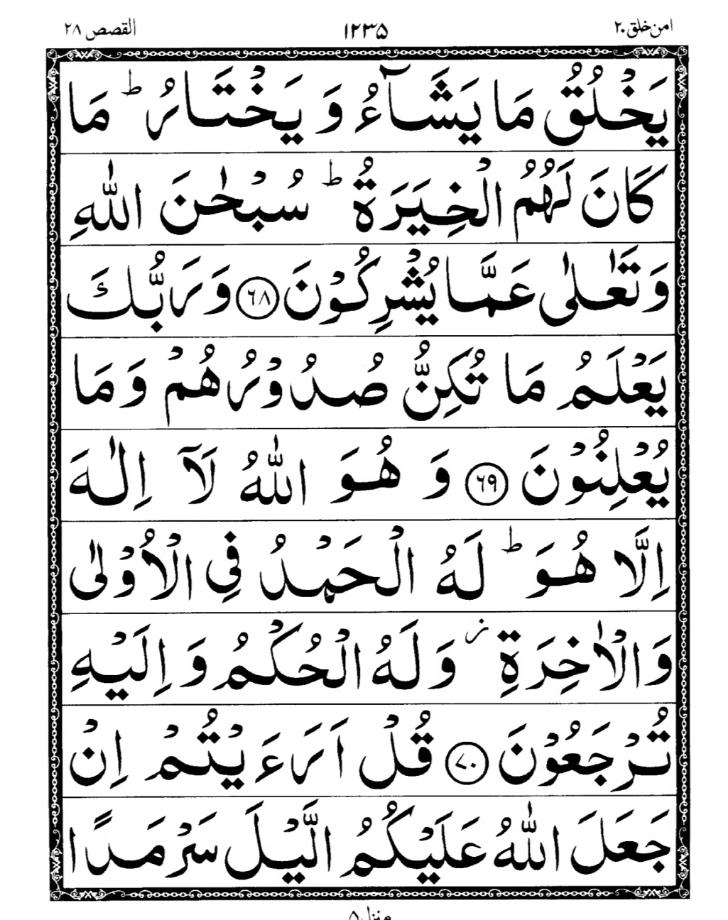 امن خلق ۲۰ ۱۲۳۵ القصص ۲۸
يَخْلُقُ مَا يَشَآءُ وَ يَخْتَارُ ؕ مَا
كَانَ لَهُمُ الْخِيَرَةُ ؕ سُبْحٰنَ اللّٰهِ
وَ تَعٰلٰى عَمَّا يُشْرِكُوْنَ ﴿۶۸﴾ وَ رَبُّكَ
يَعْلَمُ مَا تُكِنُّ صُدُوْرُهُمْ وَ مَا
يُعْلِنُوْنَ ﴿۶۹﴾ وَ هُوَ اللّٰهُ لَاۤ اِلٰهَ
اِلَّا هُوَ ؕ لَهُ الْحَمْدُ فِي الْاُوْلٰى
وَ الْاٰخِرَةِ ؗ وَ لَهُ الْحُكْمُ وَ اِلَيْهِ
تُرْجَعُوْنَ ﴿۷۰﴾ قُلْ اَرَءَيْتُمْ اِنْ
جَعَلَ اللّٰهُ عَلَيْكُمُ الَّيْلَ سَرْمَدًا
منزل ۵